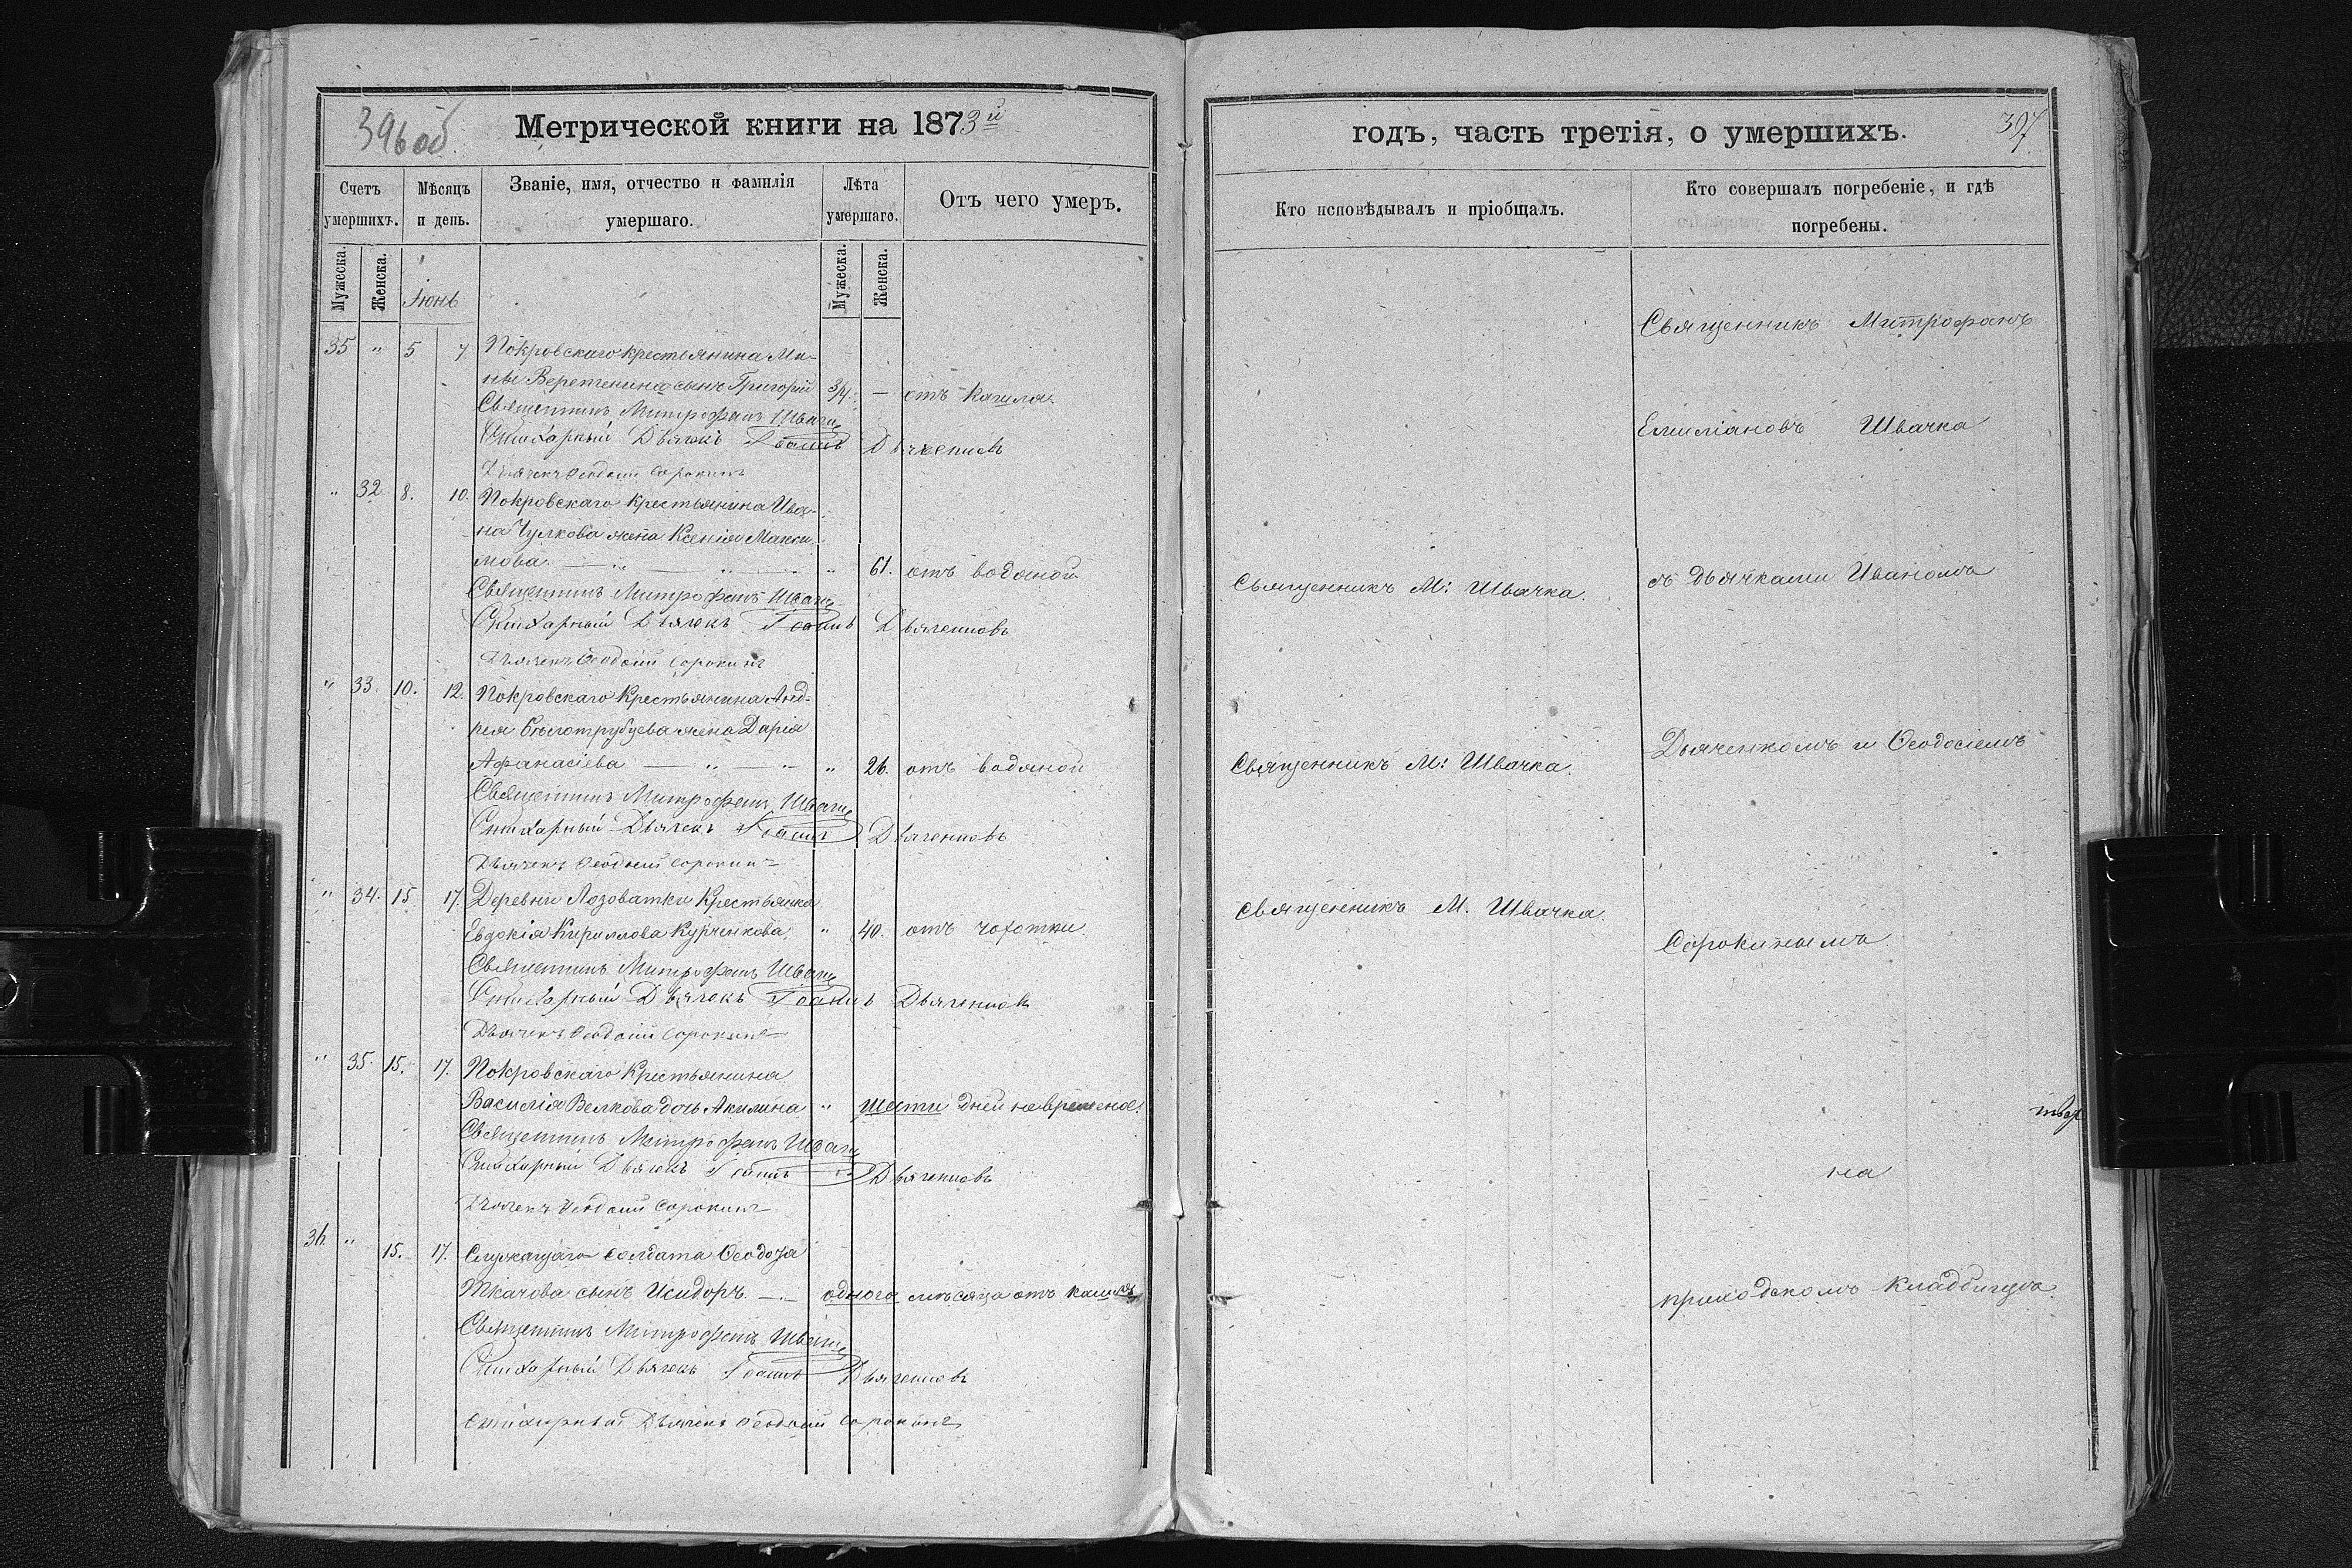 396 об
Метрической книги на 1873й
Счетъ умершихъ.
Мѣсяцъ и день.
Званіе, имя, отчество и фамилія умершаго.
Лѣта умершаго.
Отъ чего умеръ.
Мужеска.
Женска.
Мужеска.
Женска.
Іюнь
35 " 5 7 Покровскаго крестьянина Ми-
ны Веретенина сынъ Григорій 3/4. — отъ кашля.
Священникъ Митрофанъ Швачка
Стихарный Дьячекъ Іоаннъ Дьяченковъ
Дьячекъ Ѳеодосій Сорокинъ
" 32 8. 10. Покровскаго Крестьянина Ива-
на Чулкова жена Ксенія Макси-
мова — " — " — " 61. отъ водяной
Священникъ Митрофанъ Швачка
Стихарный Дьячекъ Іоаннъ Дьяченковъ
Дьячекъ Ѳеодосій Сорокинъ
" 33. 10. 12. Покровскаго Крестьянина Анд-
рея жена Дарія
Афанасіева — " — " — " 26. отъ водяной
Священникъ Митрофанъ Швачка
Стихарный Дьячекъ Іоаннъ Дьяченковъ
Дьячекъ Ѳеодосій Сорокинъ
" 34. 15 17. Деревни Лозоватки Крестьянка
Евдокія Кириллова Курченкова. " 40. отъ чохотки.
Священникъ Митрофанъ Швачка
Стихарный Дьячекъ Іоаннъ Дьяченковъ
Дьячекъ Ѳеодосій Сорокинъ
" 35. 15. 17. Покровскаго Крестьянина
Василія Велкова дочь Акилина " шести дней
Священникъ Митрофанъ Швачка
Стихарный Дьячекъ Іоаннъ Дьяченковъ
Дьячекъ Ѳеодосій Сорокинъ
36. " 15. 17. Служащаго солдата
Ткачова сынъ Исидоръ. — одного мѣсяца отъ кашля
Священникъ Митрофанъ Швачка
Стихарный Дьячекъ Іоаннъ Дьяченковъ
Стихарный Дьячекъ Ѳеодосій Сорокинъ
годъ, часть третія, о умершихъ.
397
Кто исповѣдывалъ и пріобщалъ.
Кто совершалъ погребеніе, и гдѣ погребены.
Священникъ Митрофанъ
Емиліановъ Швачка
Священникъ М: Швачка.
съ дьячками Иваномъ
Дьяченкомъ и Ѳеодосіемъ
Священникъ М: Швачка.
Священникъ М. Швачка.
Сорокинымъ
на
приходскомъ кладбищѣ.